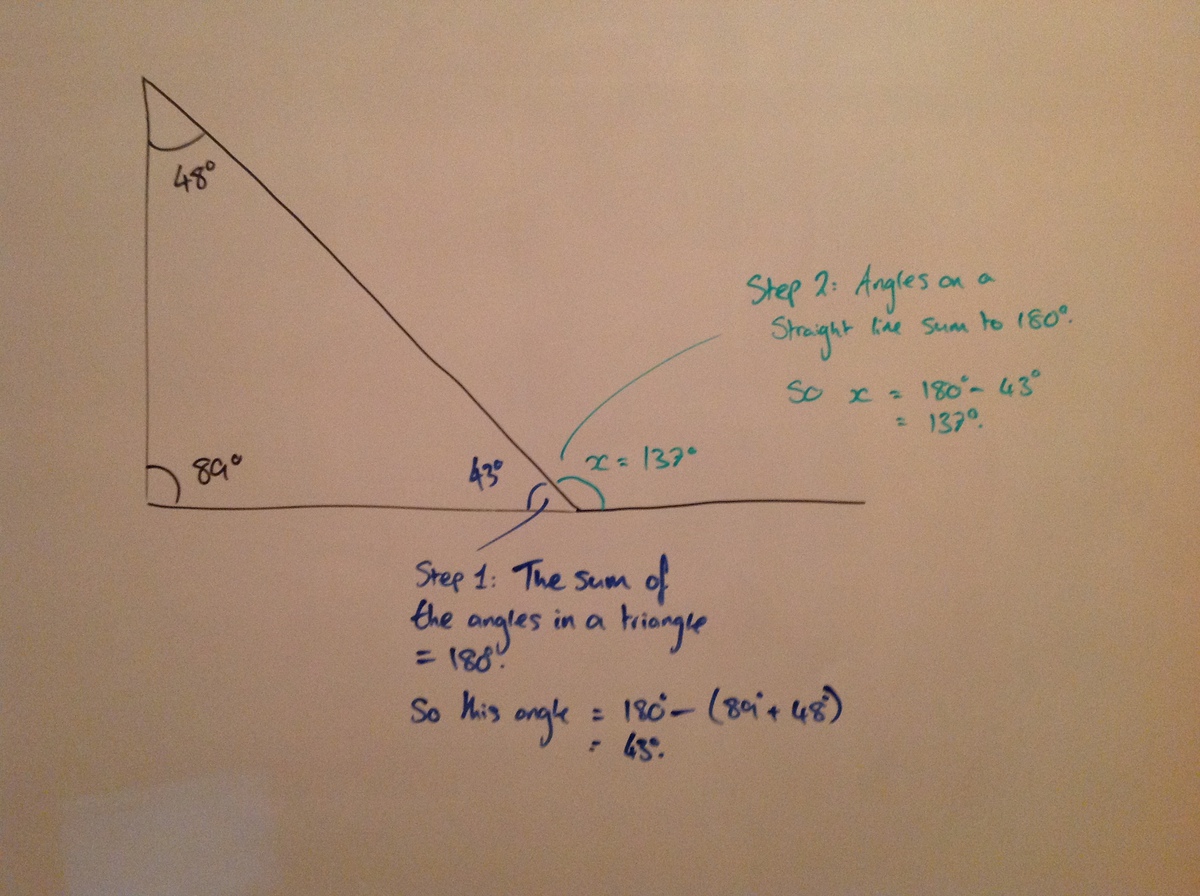 48°
89°
43°
x = 137°
Step 1: The sum of
the angles in a triangle
= 180°.
So this angle = 180° - (89° + 48°)
= 43°.
Step 2: Angles on a
Straight line sum to 180°.
So x = 180° - 43°
= 137°.